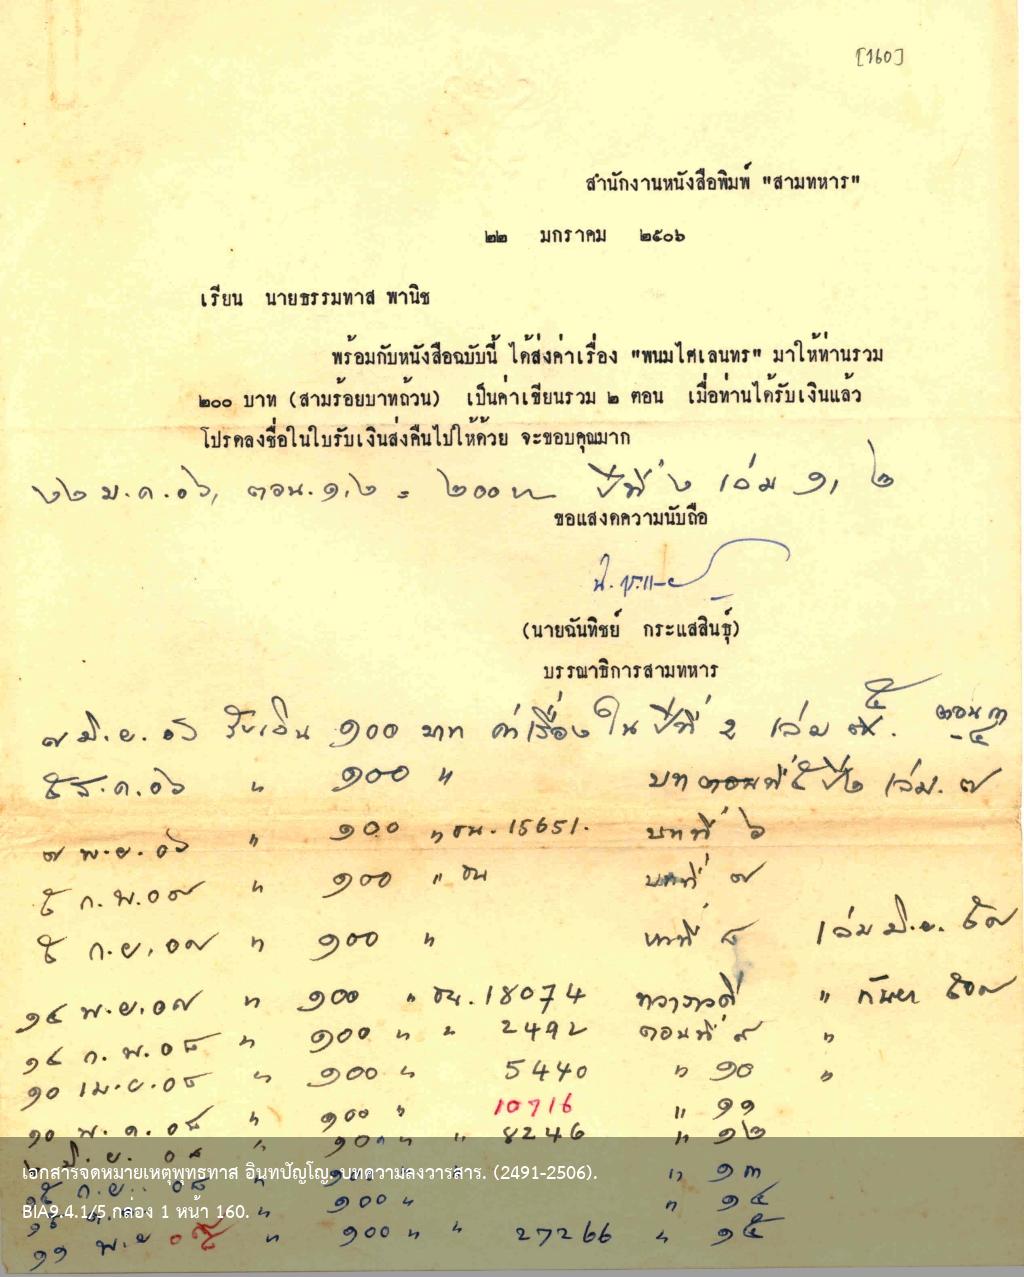 [160]
สำนักงานหนังสือพิมพ์ "สามทหาร"
๒๒ มกราคม ๒๕๐๖
เรียน นายธรรมทาส พานิช
พร้อมกับหนังสือฉบับนี้ ได้ส่งค่าเรื่อง "พนมไศเลนทร" มาให้ท่านรวม
๒๐๐ บาท (สามร้อยบาทถ้วน) เป็นค่าเขียนรวม ๒ ตอน เมื่อท่านได้รับเงินแล้ว
โปรดลงชื่อในใบรับเงินส่งคืนไปให้ด้วย จะขอบคุณมาก
๒๒ ม.ค.๐๖, ตอน.๑,๒ = ๒๐๐ บ ปีที่ ๒ เล่ม ๑, ๒
ขอแสดงความนับถือ
(นายฉันทิชย์ กระแสสินธุ์)
บรรณาธิการสามทหาร
๗ มิ.ย.๐๖ รับเงิน ๑๐๐ บาท ค่าเรื่อง ใน ปีที่ 2 เล่ม ๕. ตอน ๓-๔
๕ ส.ค.๐๖ " ๑๐๐ " บทที่ ๕ ปี๒ เล่ม. ๗
๗ พ.ย.๐๖ " ๑๐๐ " ธน.15651. บทที่ ๖
๕ ก.พ.๐๗ " ๑๐๐ " ธน บทที่ ๗
๕ ก.ย.๐๗ " ๑๐๐ " บทที่ ๘ เล่ม มิ.ย. ๐๗
๑๔ พ.ย.๐๗ " ๑๐๐ " ธน.18074 ทวาราวดี " กันยา ๐๗
๑๔ ก.พ.๐๘ " ๑๐๐ " " 2492 ตอนที่ ๙ "
๑๐ เม.ย.๐๘ " ๑๐๐ " 5440 " ๑๐ "
๑๐ พ.ค.๐๘ " ๑๐๐ " 10716 " ๑๑
มิ.ย. ๐๘ " ๑๐๐ " " 8246 " ๑๒
๑๕ ก.ย. ๐๘ " ๑๐๐ " " ๑๓
" ๑๐๐ " " ๑๔
๑๑ พ.ย ๐๘ " ๑๐๐ " " 27266 " ๑๕
เอกสารจดหมายเหตุพุทธทาส อินทปัญโญ. บทความลงวารสาร. (2491-2506).
BIA9.4.1/5 กล่อง 1 หน้า 160.